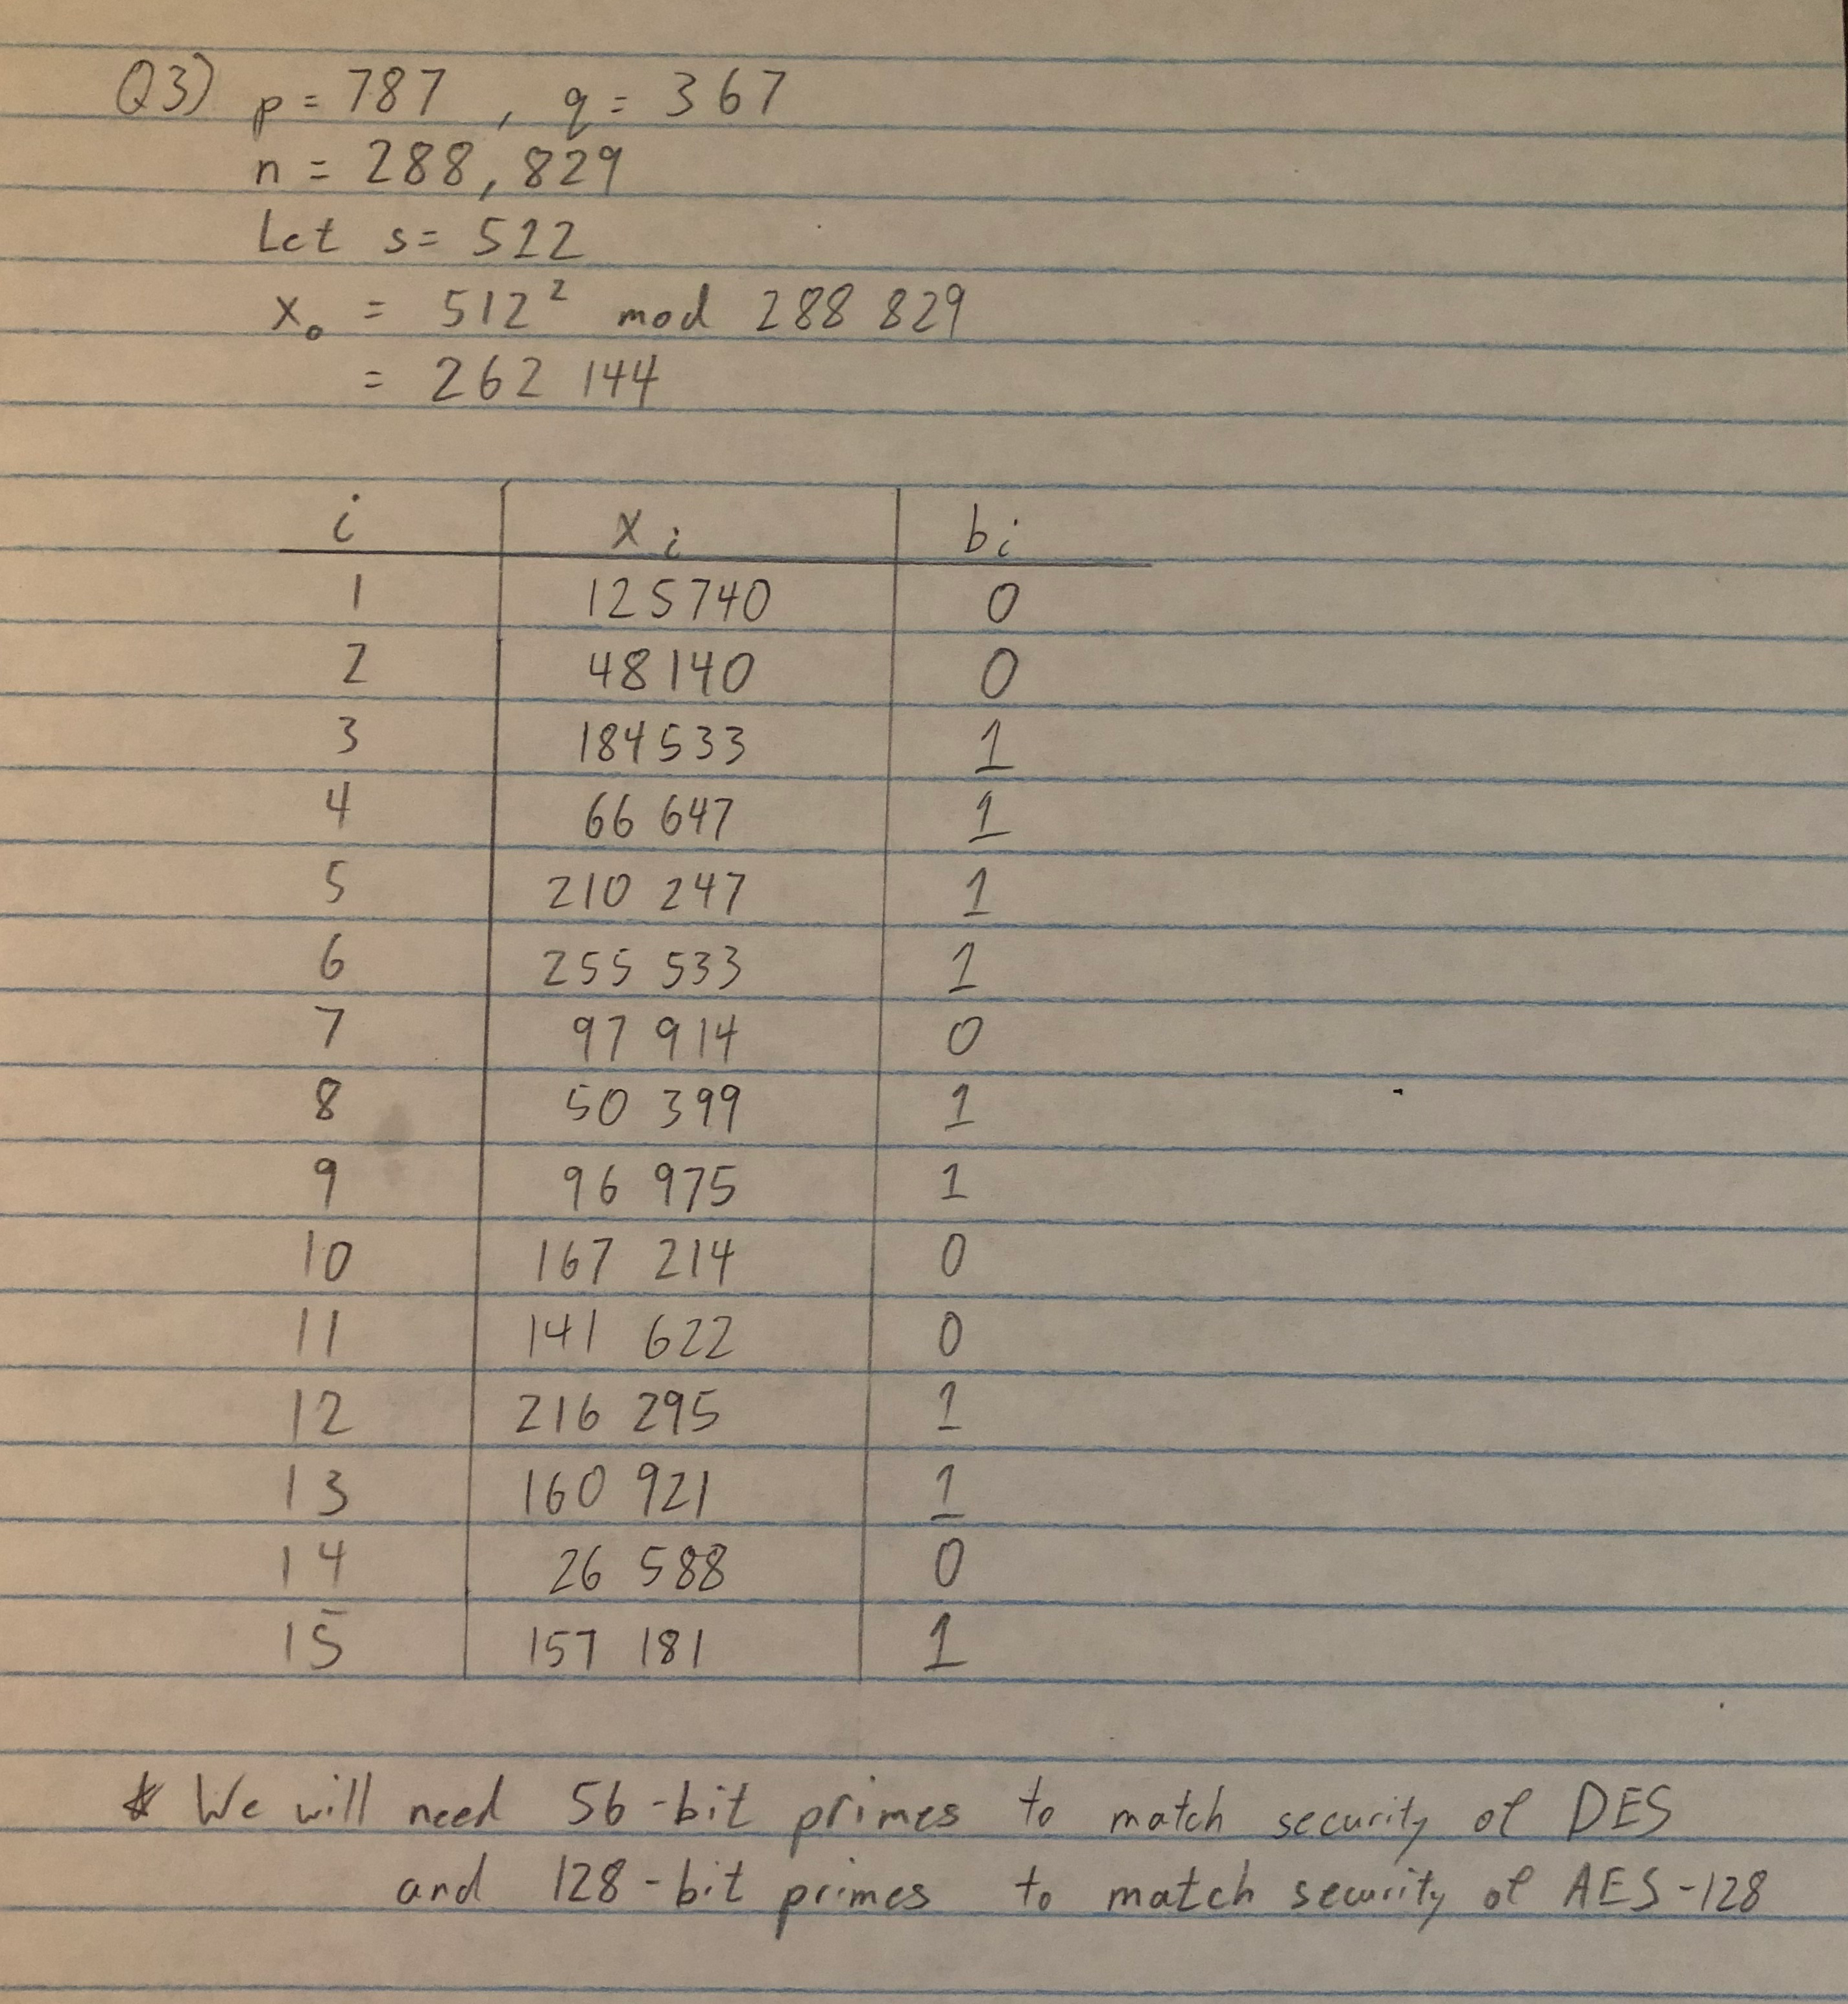 Q3) p = 787 , q = 367
n = 288,829
Let s = 512
x₀ = 512² mod 288 829
= 262 144
i xᵢ bᵢ
1 125740 0
2 48140 0
3 184533 1
4 66 647 1
5 210 247 1
6 255 533 1
7 97 914 0
8 50 399 1
9 96 975 1
10 167 214 0
11 141 622 0
12 216 295 1
13 160 921 1
14 26 588 0
15 157 181 1
* We will need 56-bit primes to match security of DES
and 128-bit primes to match security of AES-128